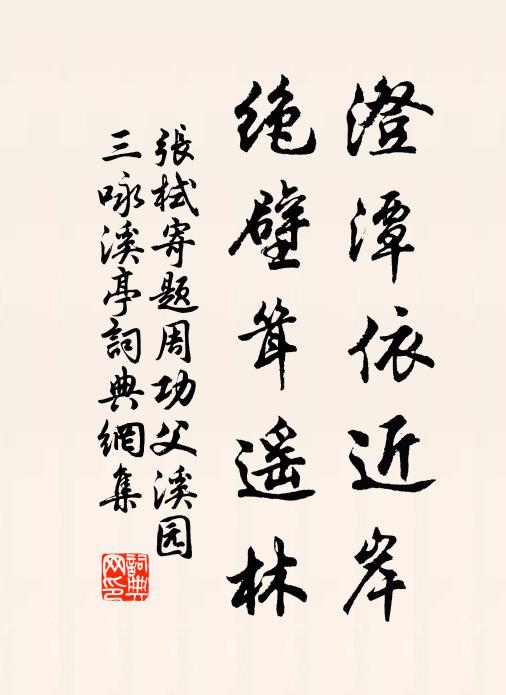 澄潭依近岸
絶壁耸遥林
張栻寄題周功父溪园
三咏溪亭詞典網集
詞典网印